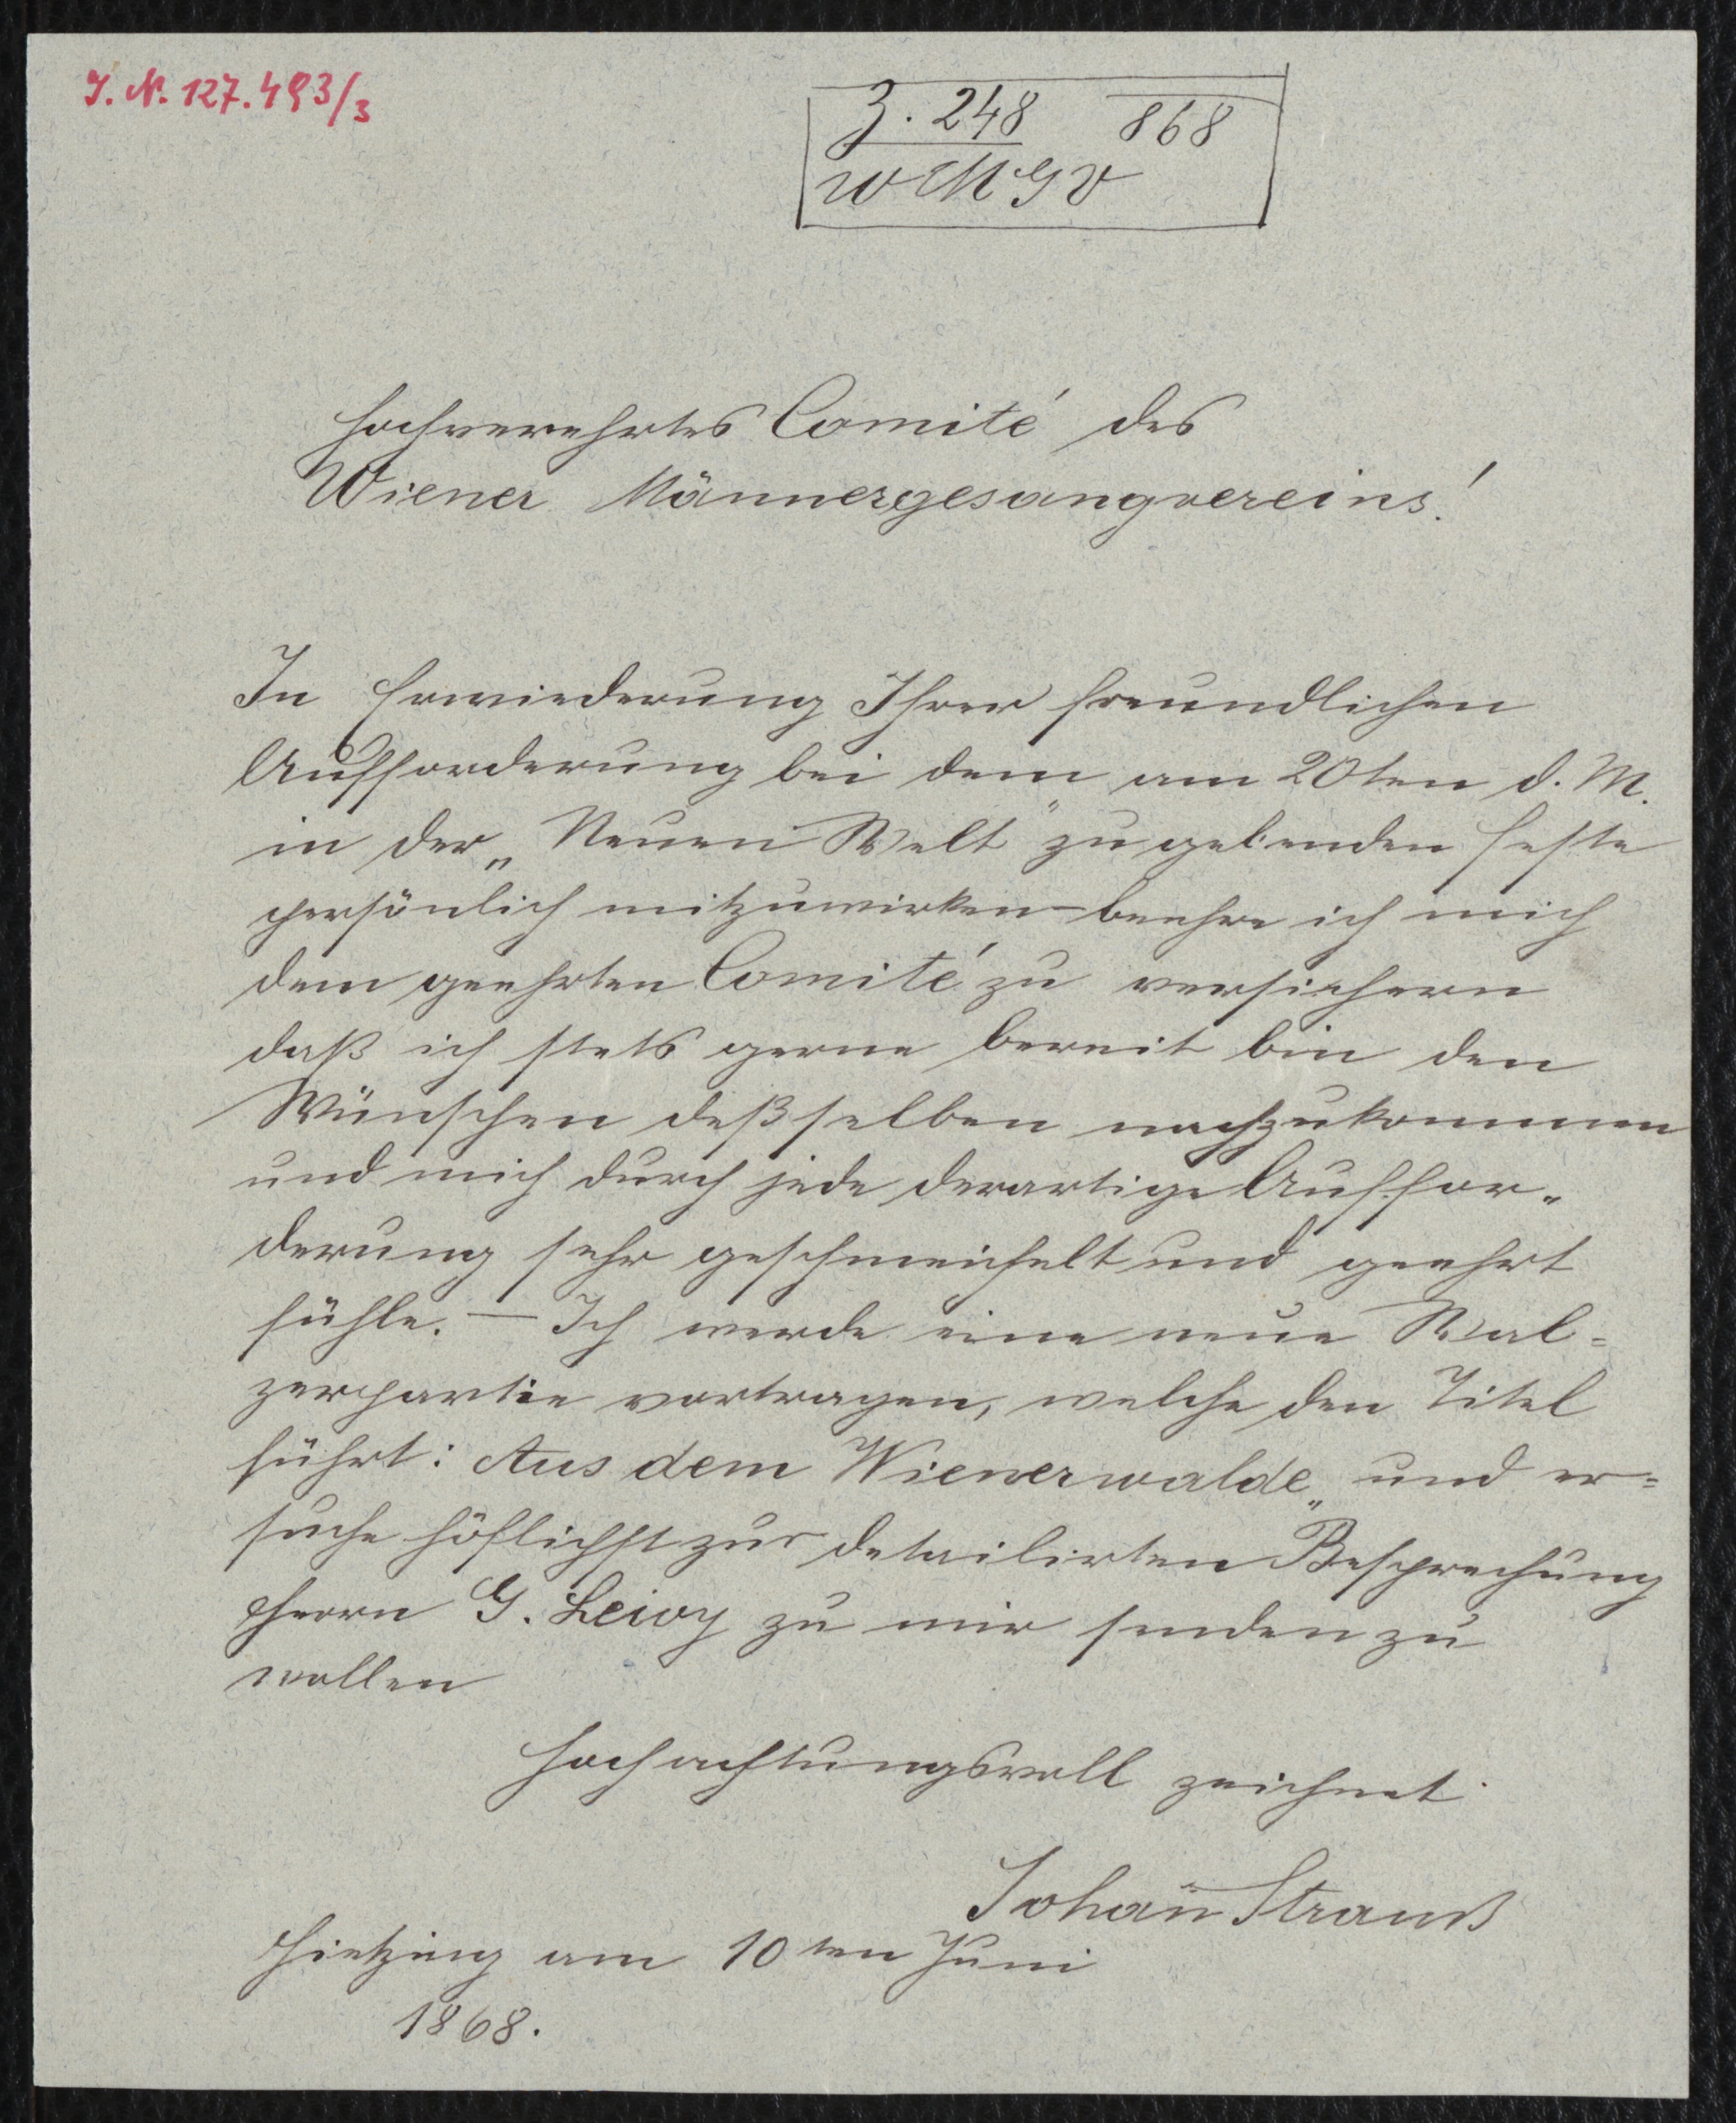 J. N. 127.493/3
Z. 248 868
WMGV
Hochverehrtes Comité des
Wiener Männergesangvereins!
In Erwiederung Ihrer freundlichen
Aufforderung bei dem am 20ten d. M.
in der „Neuen Welt" zu gebenden Feste
persönlich mitzuwirken – beehre ich mich
dem geehrten Comité zu versichern
daß ich stets gerne bereit bin den
Wünschen deßselben nachzukommen
und mich durch jede derartige Auffor-
derung sehr geschmeichelt und geehrt
fühle. – Ich werde eine neue Wal=
zerpartie vortragen, welche den Titel
führt: Aus dem Wienerwalde„ und er=
suche höflichst zur detailirten Besprechung
Herrn G. Lewy zu mir senden zu
wollen
Hochachtungsvoll zeichnet
Johañ Strauß
Hietzing am 10ten Juni
1868.